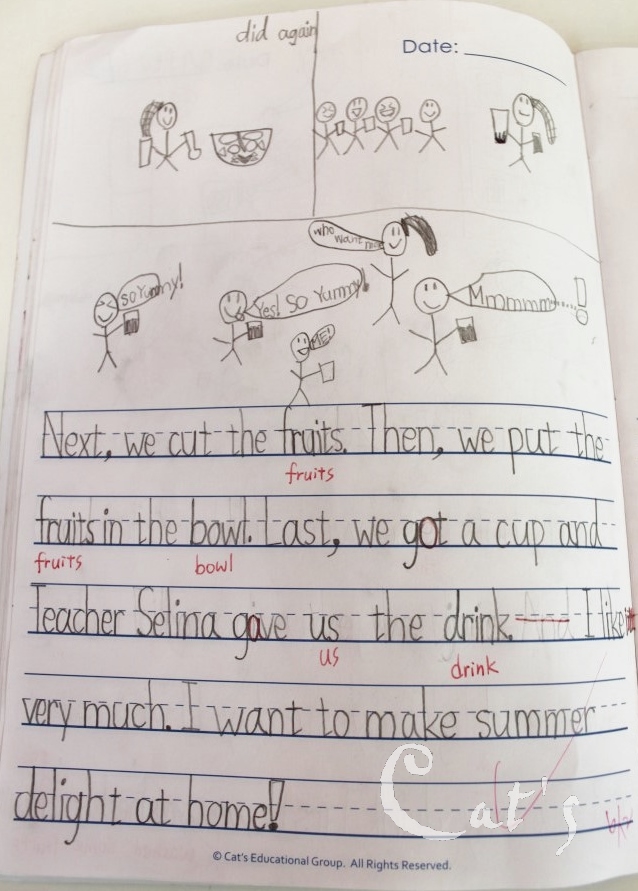 did again
Date:
who want more
so Yummy!
Yes! So Yummy!
Mmmmmm......!
ME!
Next, we cut the fruits. Then, we put the
fruits
fruits in the bowl. Last, we got a cup and
fruits bowl
Teacher Selina gave us the drink. And I like it
us drink
very much. I want to make summer
delight at home!
Cat's
© Cat's Educational Group. All Rights Reserved.